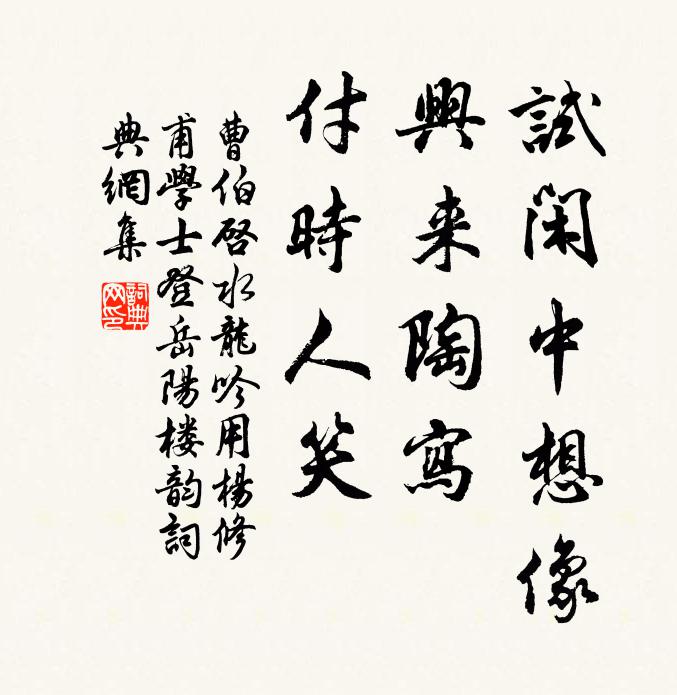 試閑中想像
興来陶寫
付時人笑
曹伯啓水龍吟用楊修
甫學士登岳陽楼韵詞
典網集
詞典网印